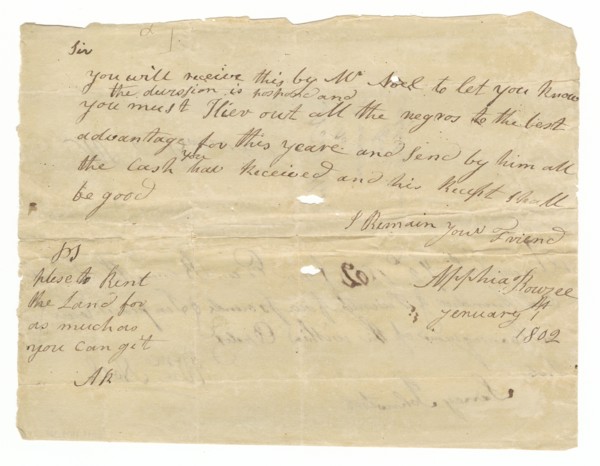 Sir
you will receive this by Mr Noel to let you know
the divission is pospond and
you must Hier out all the negros to the best
advantage for this yeare and Send by him all
the Cash you hav Received and his Receipt Shall
be good
I Remain your Friend
Apphia Rouzee
Jenuary
1802
PS
plese to Rent
the Land for
as much as
you can git
AR